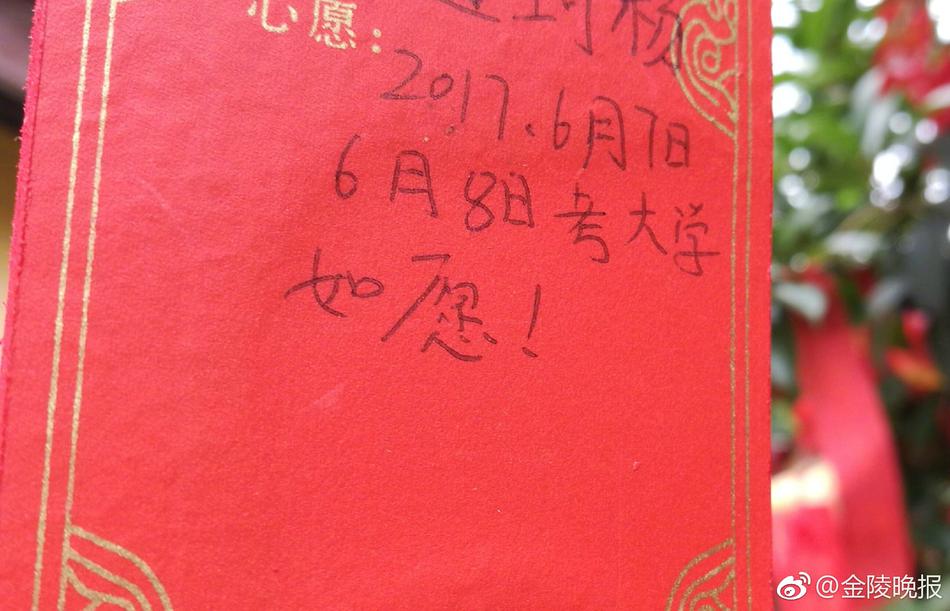 心愿：
杨
2017.6月7日
6月8日考大学
如愿！
@金陵晚报